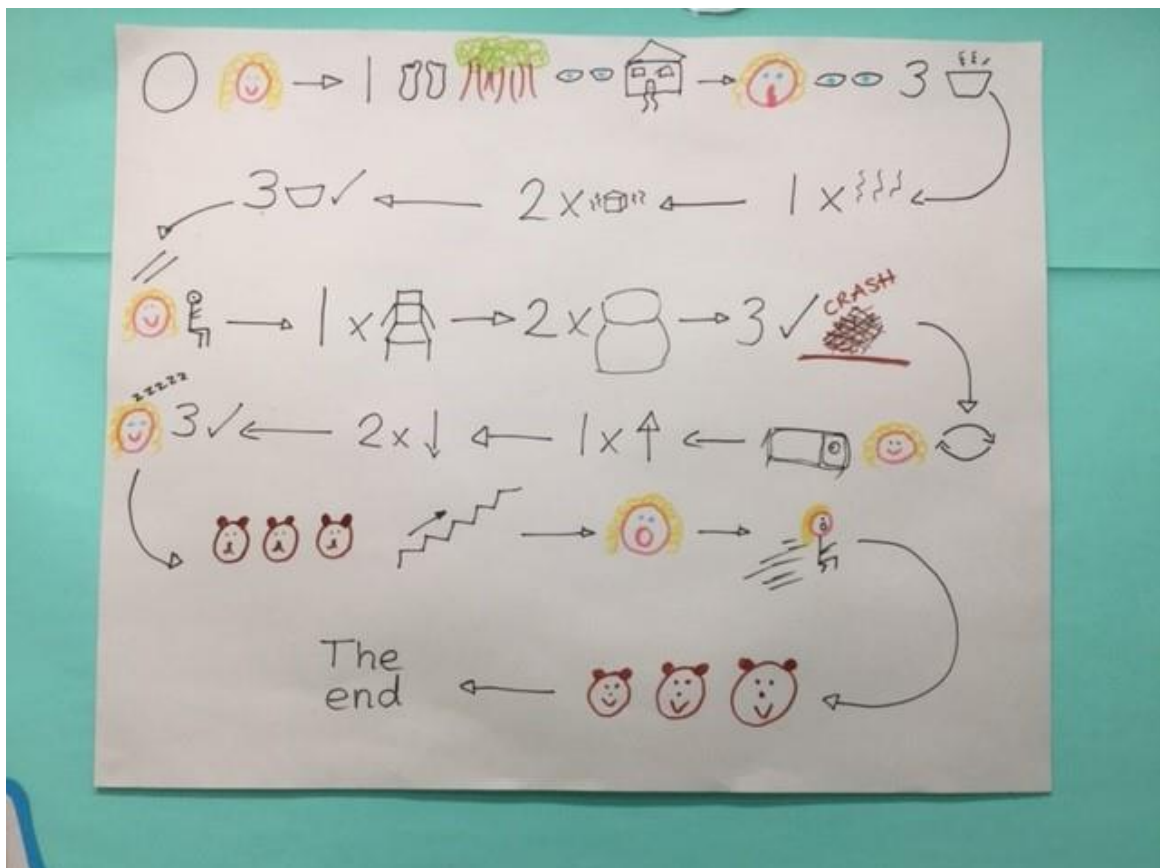 1 3
3 ✓ 2 x 1 x
1 x 2 x 3 ✓ CRASH
zzzzz
3 ✓ 2 x 1 x
The
end